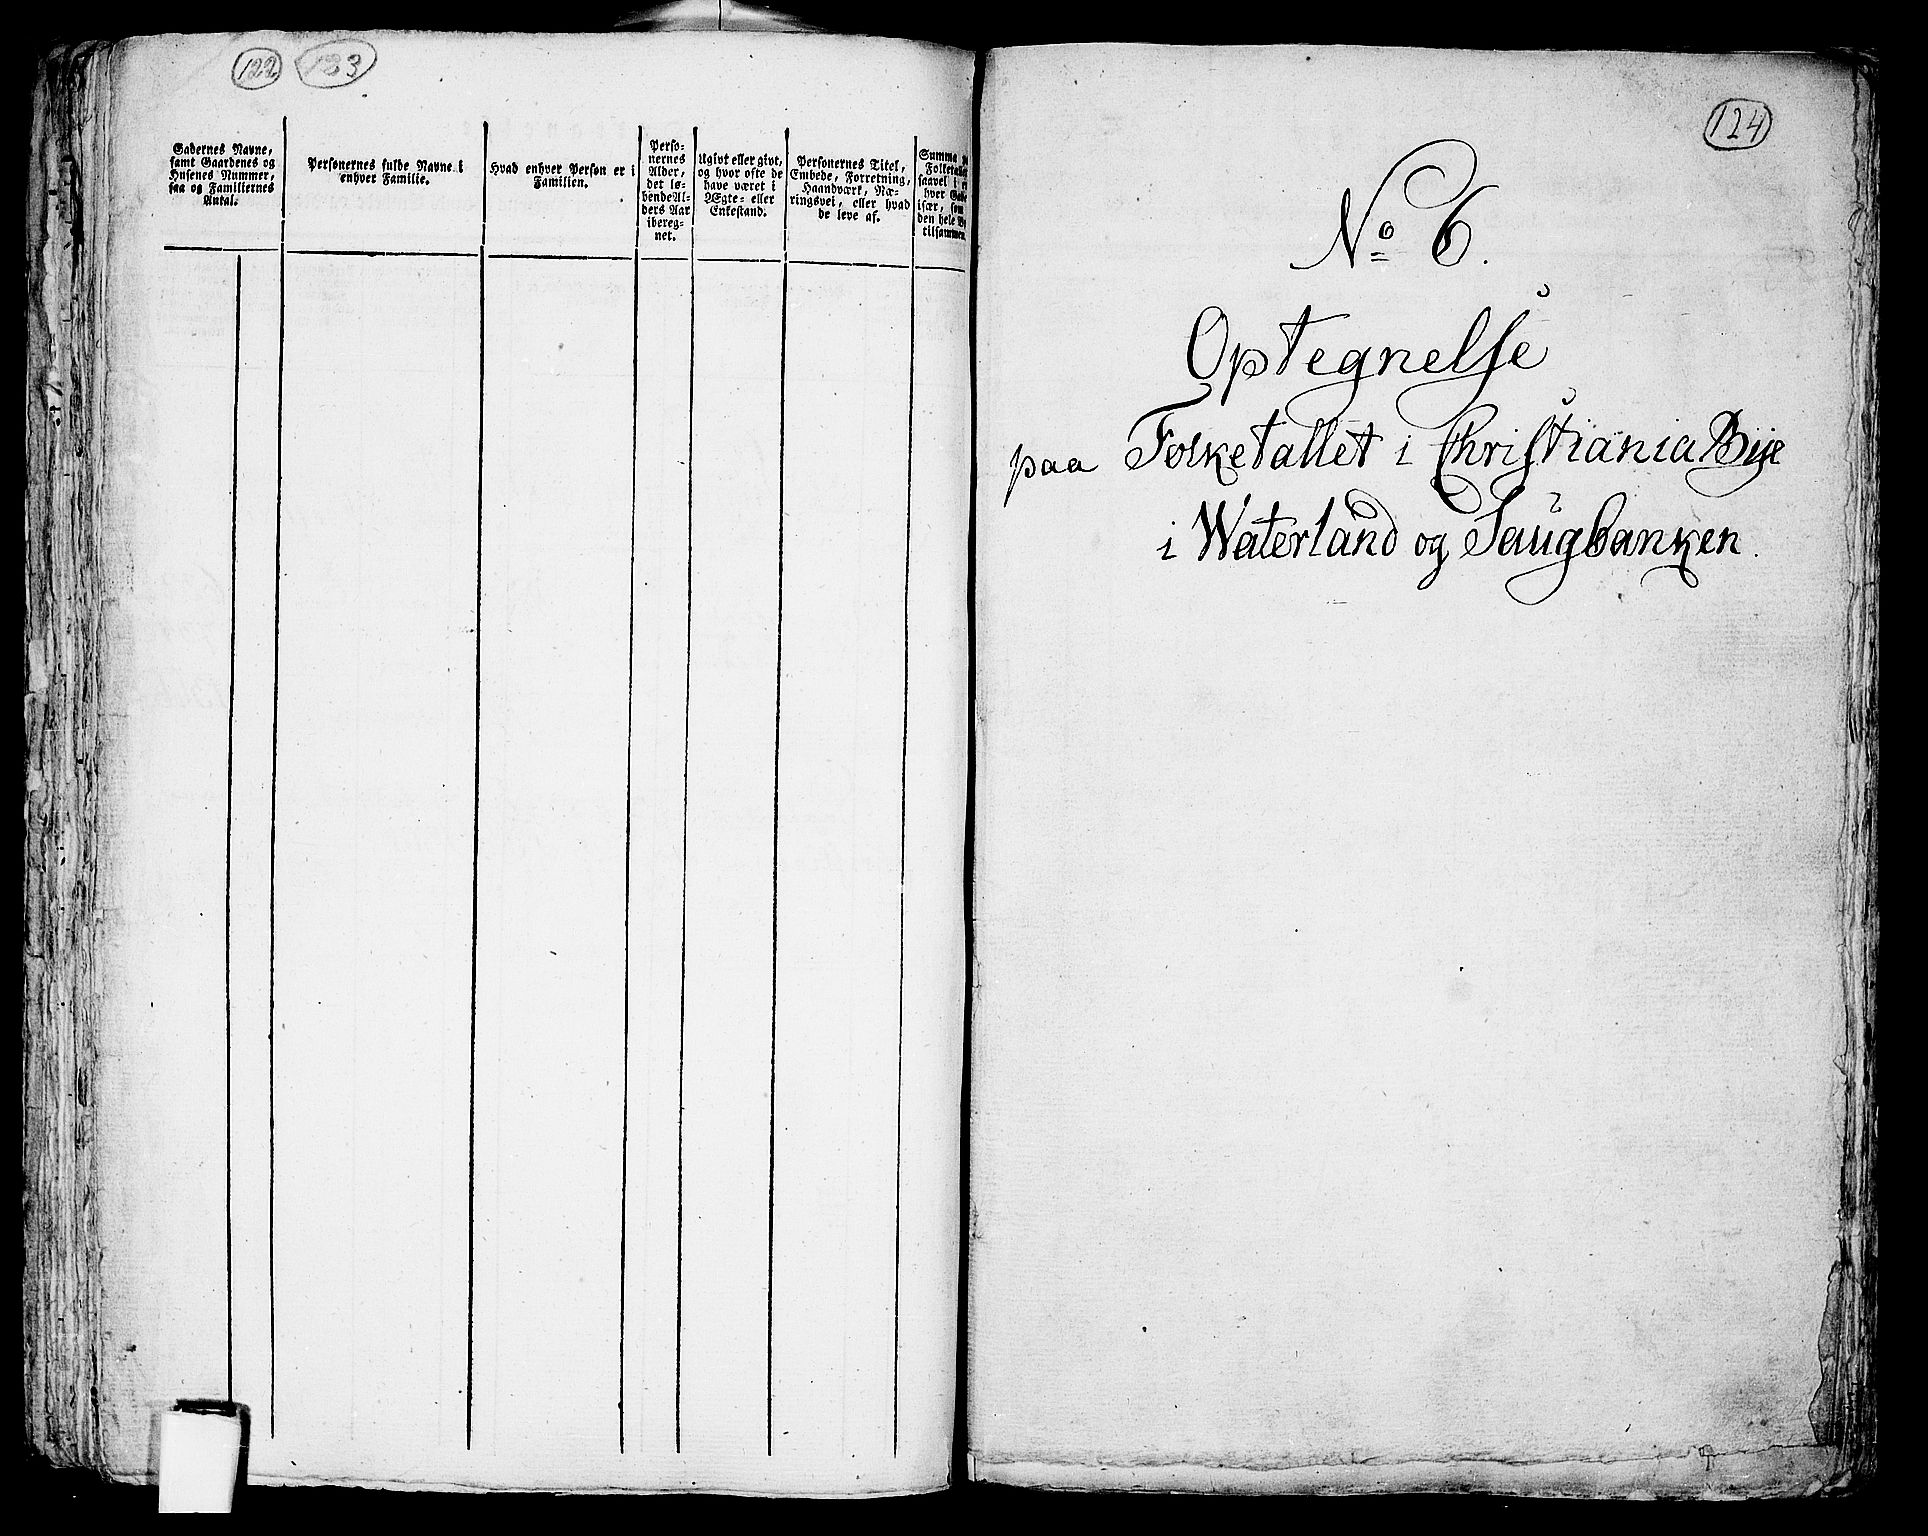 122 123
Gadernes Navne,
samt Gaardenes og
Husenes Nummer,
saa og Familiernes
Antal.
Personernes fulde Navne i
enhver Familie.
Hvad enhver Person er i
Familien.
Perso-
nernes
Alder,
det lø-
bende Al-
ders Aar
ibereg-
net.
Ugivt eller givt,
og hvor ofte de
have været i
Ægte- eller
Enkestand.
Personernes Titel,
Embede, Forretning,
Haandværk, Næ-
ringsvei, eller hvad
de leve af.
Summa
Folketallet
saavel i
hver Gade
især, som
den hele
tilsammen
124
No 6.
Optegnelse
paa Folketallet i Christiania Bye
i Waterland og Saugbanken.